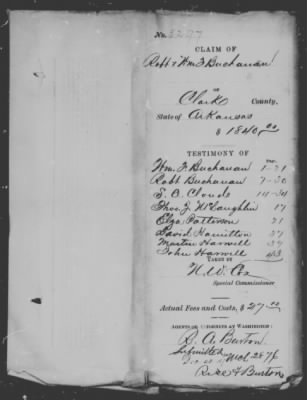 No. 3297
CLAIM OF
Robt & Wm F Buchanan
of
Clark County,
State of Arkansas
$ 1840.00
TESTIMONY OF
Wm. F. Buchanan 1-21
Robt Buchanan 7-30
S. O. Cloud
Thos. J. McLaughlin 17
Eliza Patterson 21
David Hamilton 27
Martin Harwell 37
John Harwell 43
TAKEN BY
N. W. Cox
Special Commissioner
Actual Fees and Costs, $ 27.00
AGENTS OR ATTORNEYS AT WASHINGTON:
R. A. Burton
Submitted
Mch 28 76
Rice & Burton